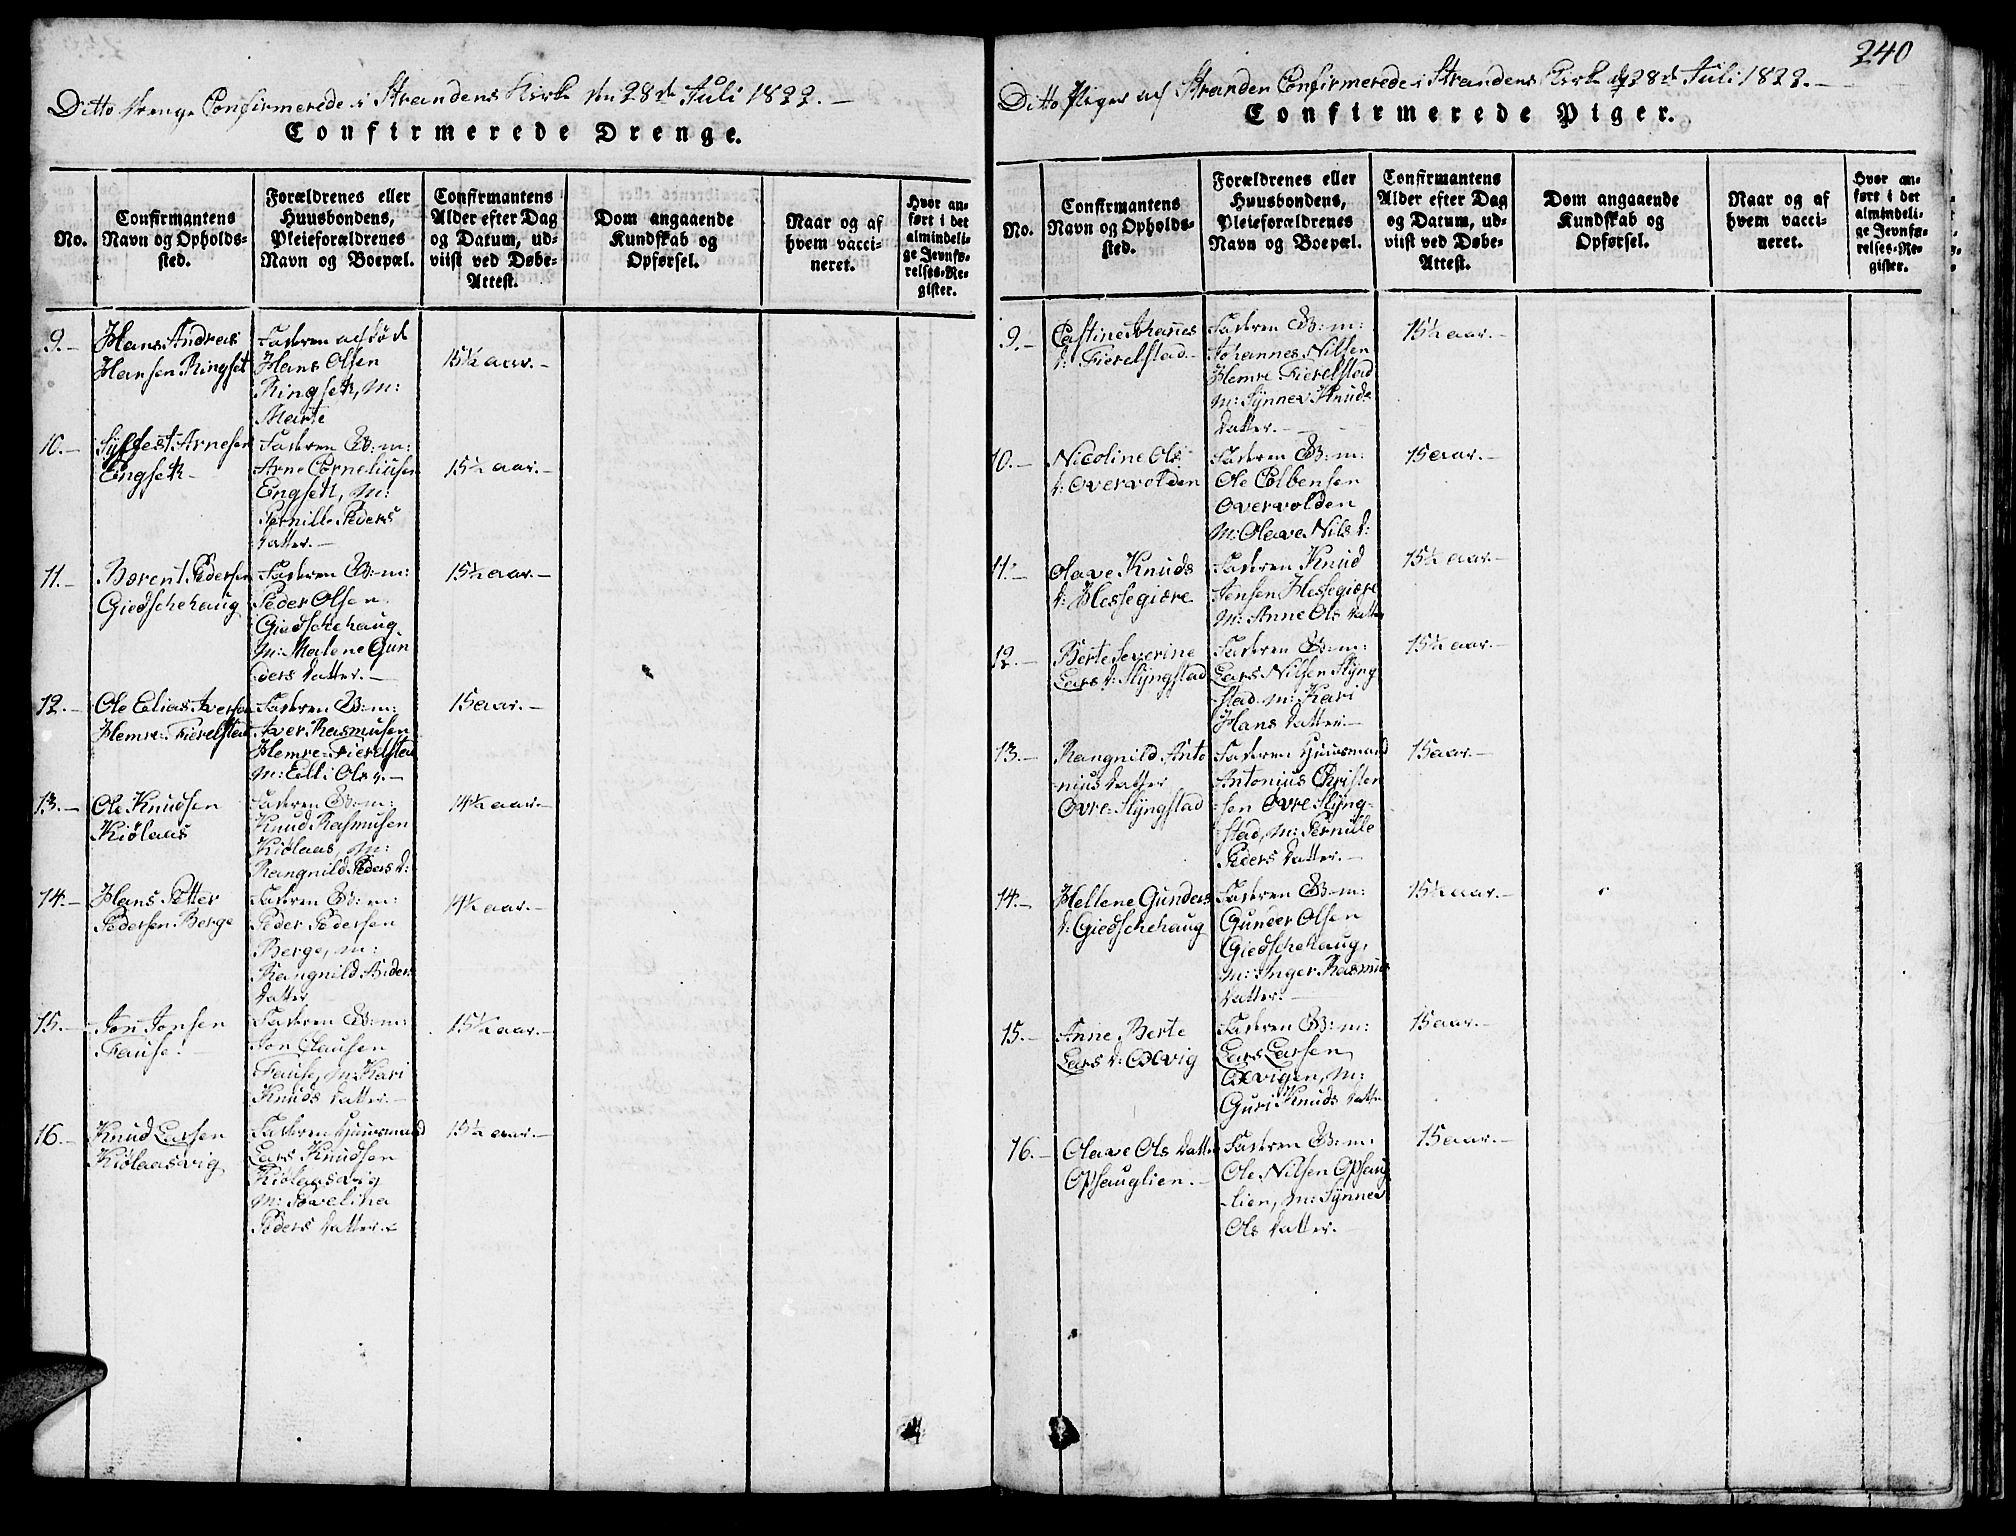 Ditto Drenge Confirmerede i Strandens Kirke den 28de Juli 1822.-
Confirmerede Drenge.
No.
Confirmantens
Navn og Opholds-
sted.
Forældrenes eller
Huusbondens,
Pleieforældrenes
Navn og Boepæl.
Confirmantens
Alder efter Dag
og Datum, ud-
viist ved Døbe-
Attest.
Dom angaaende
Kundskab og
Opførsel.
Naar og af
hvem vacci-
neret.
Hvor an-
ført i det
almindeli-
ge Jevnfø-
relses-Re-
gister.
9.-
Hans Andreas
Hansen Ringset
Faderen afdøde
Hans Olsen
Ringseth, M:
Marte
15½ aar.-
10.-
Syffest Arnesen
Engseth-
Faderen B:m:
Arne Corneliusen
Engseth, M:
Pernille Peders
datter.-
15½ aar.-
11.-
Berent Pedersen
Giedschehaug
Faderen B:m:
Peder Olsen
Giedschehaug
M: Malene Gun
ders datter.-
15½ aar.-
12.-
Ole Elias Iversen
Hemre-Fierelstad
Faderen B:m:
Iver Rasmusen
Hemre-Fierelstad
M: Elli Ols d.-
15 aar.-
13.-
Ole Knudsen
Kiølaas
Faderen B:m:
Knud Rasmusen
Kiølaas, M:
Rangnild Peders d:
14½ aar.-
14.-
Hans Petter
Pedersen Berge
Faderen B:m:
Peder Pedersen
Berge, M:
Rangnild Anders
datter
14½ aar.-
15.-
Jon Jonsen
Fause.-
Faderen B:m:
Jon Clausen
Fause, M: Kari
Knuds datter.-
15½ aar.-
16.-
Knud Larsen
Kiølaasvig
Faderen Huusmand
Lars Knudsen
Kiølaasvig
M: Jovelina
Peders datter.-
15½ aar.-
240
Ditto Piger af Stranden Confirmerede i Strandens Kirke d 28de Juli 1822.-
Confirmerede Piger.
No.
Confirmantens
Navn og Opholds-
sted.
Forældrenes eller
Huusbondens,
Pleieforældrenes
Navn og Boepæl.
Confirmantens
Alder efter Dag
og Datum, ud-
viist ved Døbe-
Attest.
Dom angaaende
Kundskab og
Opførsel.
Naar og af
hvem vacci-
neret.
Hvor an-
ført i det
almindeli-
ge Jevnfø-
relses-Re-
gister.
9.-
Castine Johannes
d: Fierelstad-
Faderen B:m:
Johannes Nilsen
Hemre Fierelstad
M: Synnev Knuds
datter.-
15½ aar.-
10.-
Nicoline Ols
d: Overvolden
Faderen B:m:
Ole Colbensen
Overvolden
M: Olave Nils d:
15 aar.-
11.-
Olave Knuds
d: Hessegiære
Faderen Knud
Jensen Hessegiære
M: Anne Ols datter
15½ aar.-
12.-
Berte Severine
Lars d: Slyngstad
Faderen B:m:
Lars Nilsen Slyng
stad M: Kari
Hans datter.-
15½ aar.-
13.-
Rangnild Anto
nius datter
Øvre-Slyngstad
Faderen Huusmand
Antonius Christen
sen Øvre Slyng-
stad, M: Pernille
Peders datter.-
15 aar.-
14.-
Hellene Gunders
d: Giedschehaug
Faderen B:m:
Gunder Olsen
Giedschehaug,
M: Inger Rasmus
datter.-
15½ aar.-
15.-
Anne Berte
Lars d: Oxvig
Faderen B:m:
Lars Larsen
Oxvigen, M:
Guri Knuds datter
15 aar.-
16.-
Olave Ols datter
Opsauglien.-
Faderen B:m:
Ole Nilsen Opsaug
-lien, M: Synnev
Ols datter.-
15 aar.-